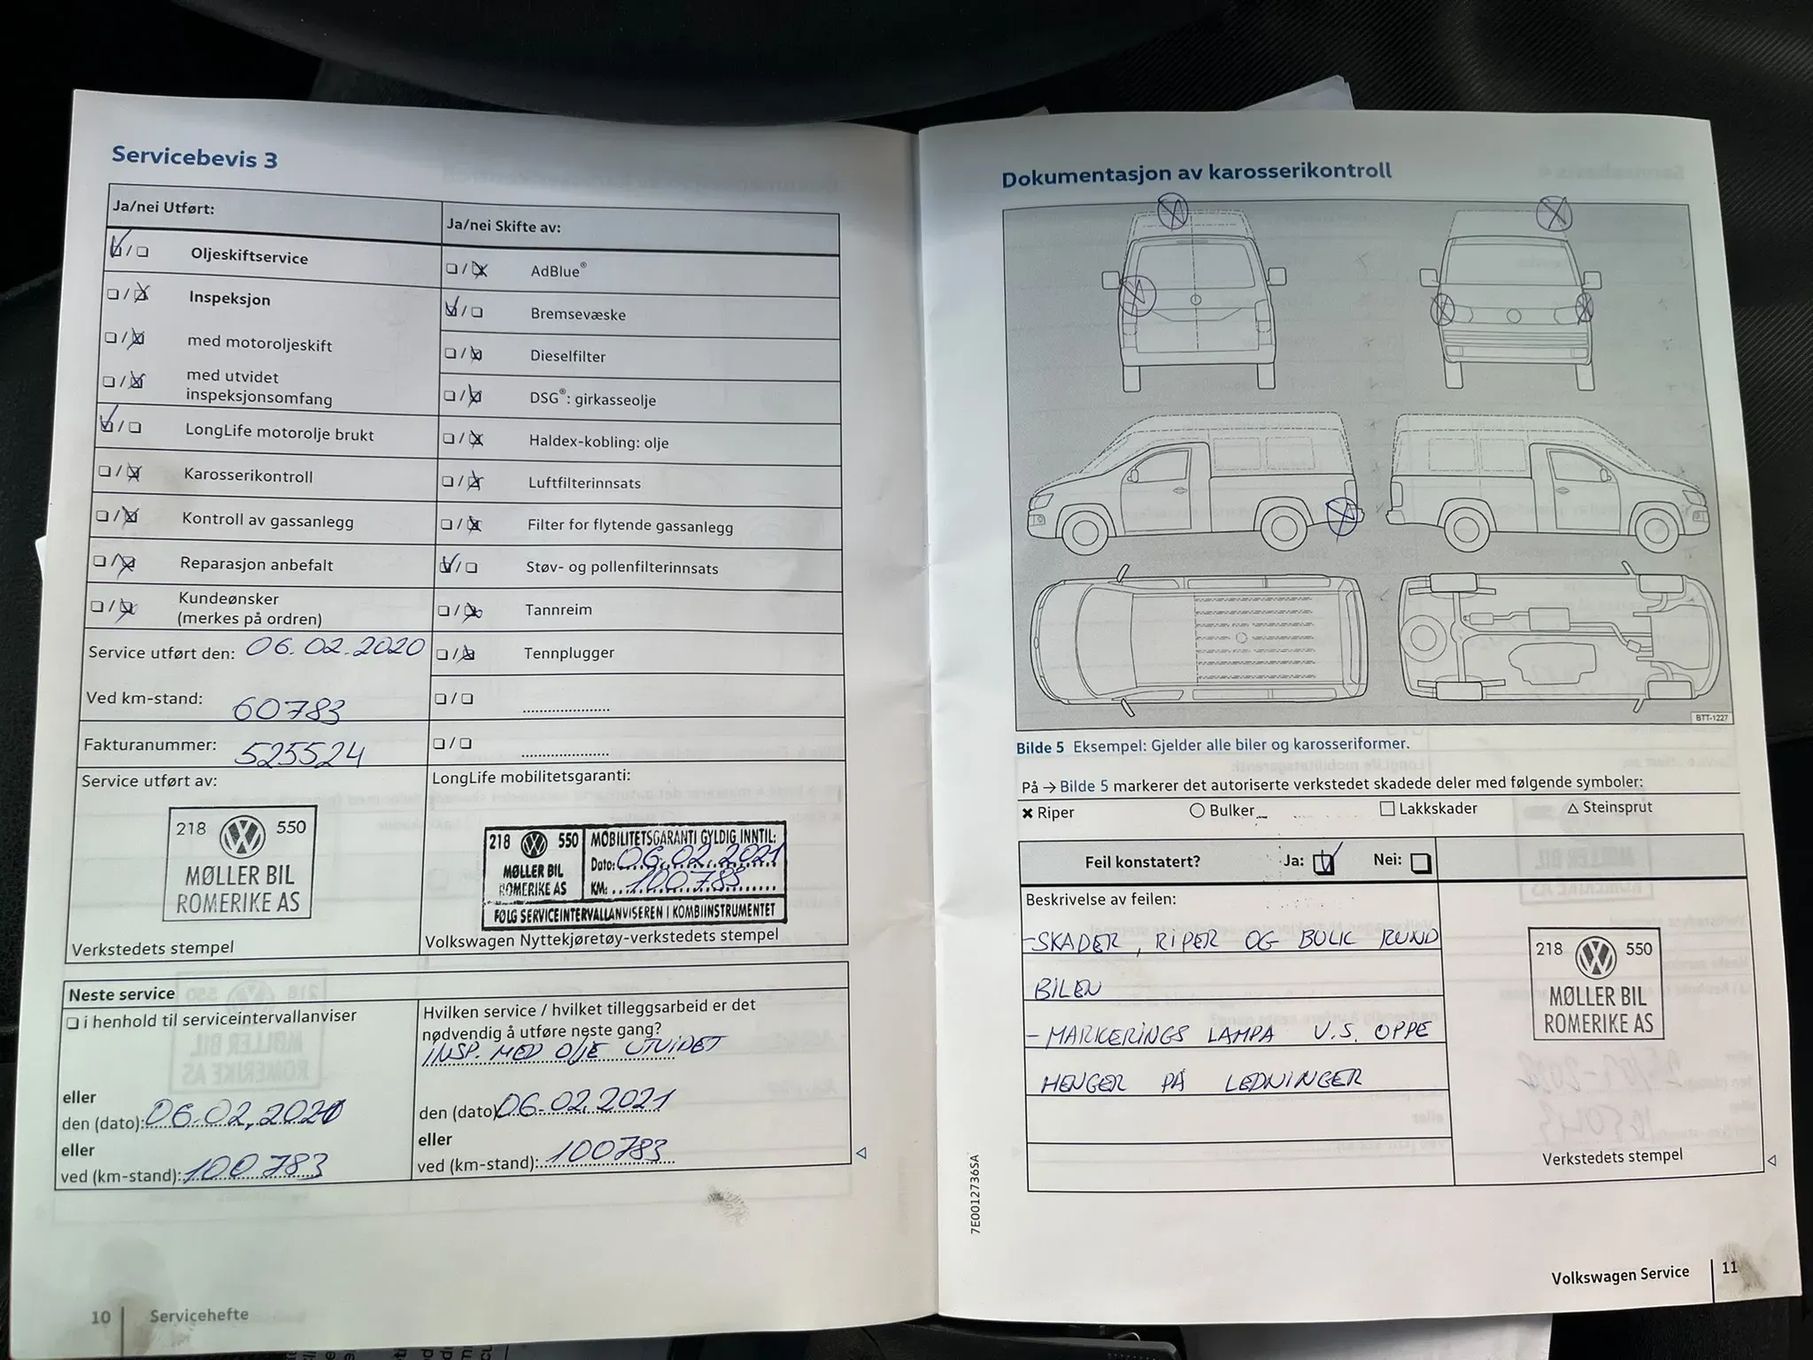 Servicebevis 3
Ja/nei Utført:
Oljeskiftservice
Inspeksjon
med motoroljeskift
med utvidet
inspeksjonsomfang
LongLife motorolje brukt
Karosserikontroll
Kontroll av gassanlegg
Reparasjon anbefalt
Kundeønsker
(merkes på ordren)
Service utført den: 06.02.2020
Ved km-stand: 60783
Fakturanummer: 525524
Ja/nei Skifte av:
AdBlue®
Bremsevæske
Dieselfilter
DSG®: girkasseolje
Haldex-kobling: olje
Luftfilterinnsats
Filter for flytende gassanlegg
Støv- og pollenfilterinnsats
Tannreim
Tennplugger
Service utført av:
218 550
MØLLER BIL
ROMERIKE AS
Verkstedets stempel
LongLife mobilitetsgaranti:
218 550 MOBILITETSGARANTI GYLDIG INNTIL:
MØLLER BIL Dato: 06.02.2021
ROMERIKE AS KM: 100783
FØLG SERVICEINTERVALLANVISEREN I KOMBIINSTRUMENTET
Volkswagen Nyttekjøretøy-verkstedets stempel
Neste service
i henhold til serviceintervallanviser
eller
den (dato): 06.02.2021
eller
ved (km-stand): 100783
Hvilken service / hvilket tilleggsarbeid er det
nødvendig å utføre neste gang?
INSP. MED OLJE UTVIDET
den (dato) 06.02.2021
eller
ved (km-stand): 100783
10 Servicehefte
Dokumentasjon av karosserikontroll
BTT-1227
Bilde 5 Eksempel: Gjelder alle biler og karosseriformer.
På → Bilde 5 markerer det autoriserte verkstedet skadede deler med følgende symboler:
× Riper ○ Bulker □ Lakkskader △ Steinsprut
Feil konstatert? Ja: Nei:
Beskrivelse av feilen:
-SKADER, RIPER OG BULK RUND
BILEN
- MARKERINGS LAMPA V.S. OPPE
HENGER PÅ LEDNINGER
218 550
MØLLER BIL
ROMERIKE AS
Verkstedets stempel
7E0012736SA
Volkswagen Service 11